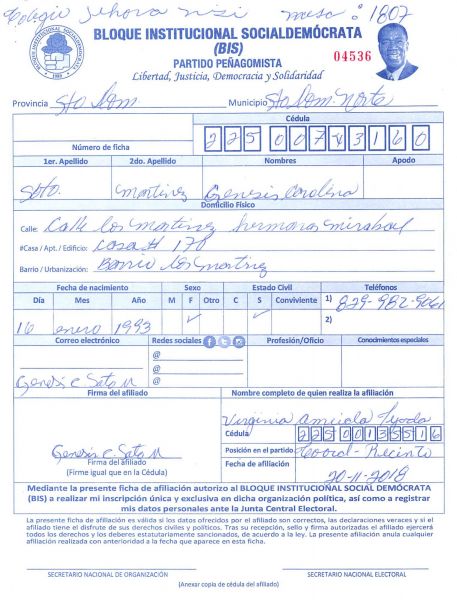 Colegio Jehova nisi mesa: 1807
BLOQUE INSTITUCIONAL SOCIALDEMÓCRATA
(BIS)
PARTIDO PEÑAGOMISTA
04536
Libertad, Justicia, Democracia y Solidaridad
Provincia Sto Dom Municipio Sto Dom. Norte
Cédula
Número de ficha 225 0074316 0
1er. Apellido 2do. Apellido Nombres Apodo
Soto. Martinez Genesis Carolina
Domicilio Físico
Calle: Calle los Martinez hermanas mirabal
#Casa / Apt. / Edificio: Casa # 170
Barrio / Urbanización: Barrio los Martinez
Fecha de nacimiento Sexo Estado Civil Teléfonos
Día Mes Año M F Otro C S Conviviente 1) 829-982-9061
16 enero 1993 ✓ ✓ 2)
Correo electrónico Redes sociales Profesión/Oficio Conocimientos especiales
@
@
Genesis C Soto M @
Firma del afiliado Nombre completo de quien realiza la afiliación
Virginia
Cédula 225 0013551 6
Genesis C. Soto M Posición en el partido Coord-Recinto
Firma del afiliado Fecha de afiliación
(Firme igual que en la Cédula) 20-11-2018
Mediante la presente ficha de afiliación autorizo al BLOQUE INSTITUCIONAL SOCIAL DEMÓCRATA
(BIS) a realizar mi inscripción única y exclusiva en dicha organización política, así como a registrar
mis datos personales ante la Junta Central Electoral.
La presente ficha de afiliación es válida si los datos ofrecidos por el afiliado son correctos, las declaraciones veraces y si el
afiliado tiene el disfrute de sus derechos civiles y políticos. Tras su recepción, sello y firma autorizadas el afiliado ejercerá
todos los derechos y los deberes estatutariamente sancionados, de acuerdo a la ley. La presente afiliación anula cualquier
afiliación realizada con anterioridad a la fecha que aparece en esta ficha.
SECRETARIO NACIONAL DE ORGANIZACIÓN SECRETARIO NACIONAL ELECTORAL
(Anexar copia de cédula del afiliado)